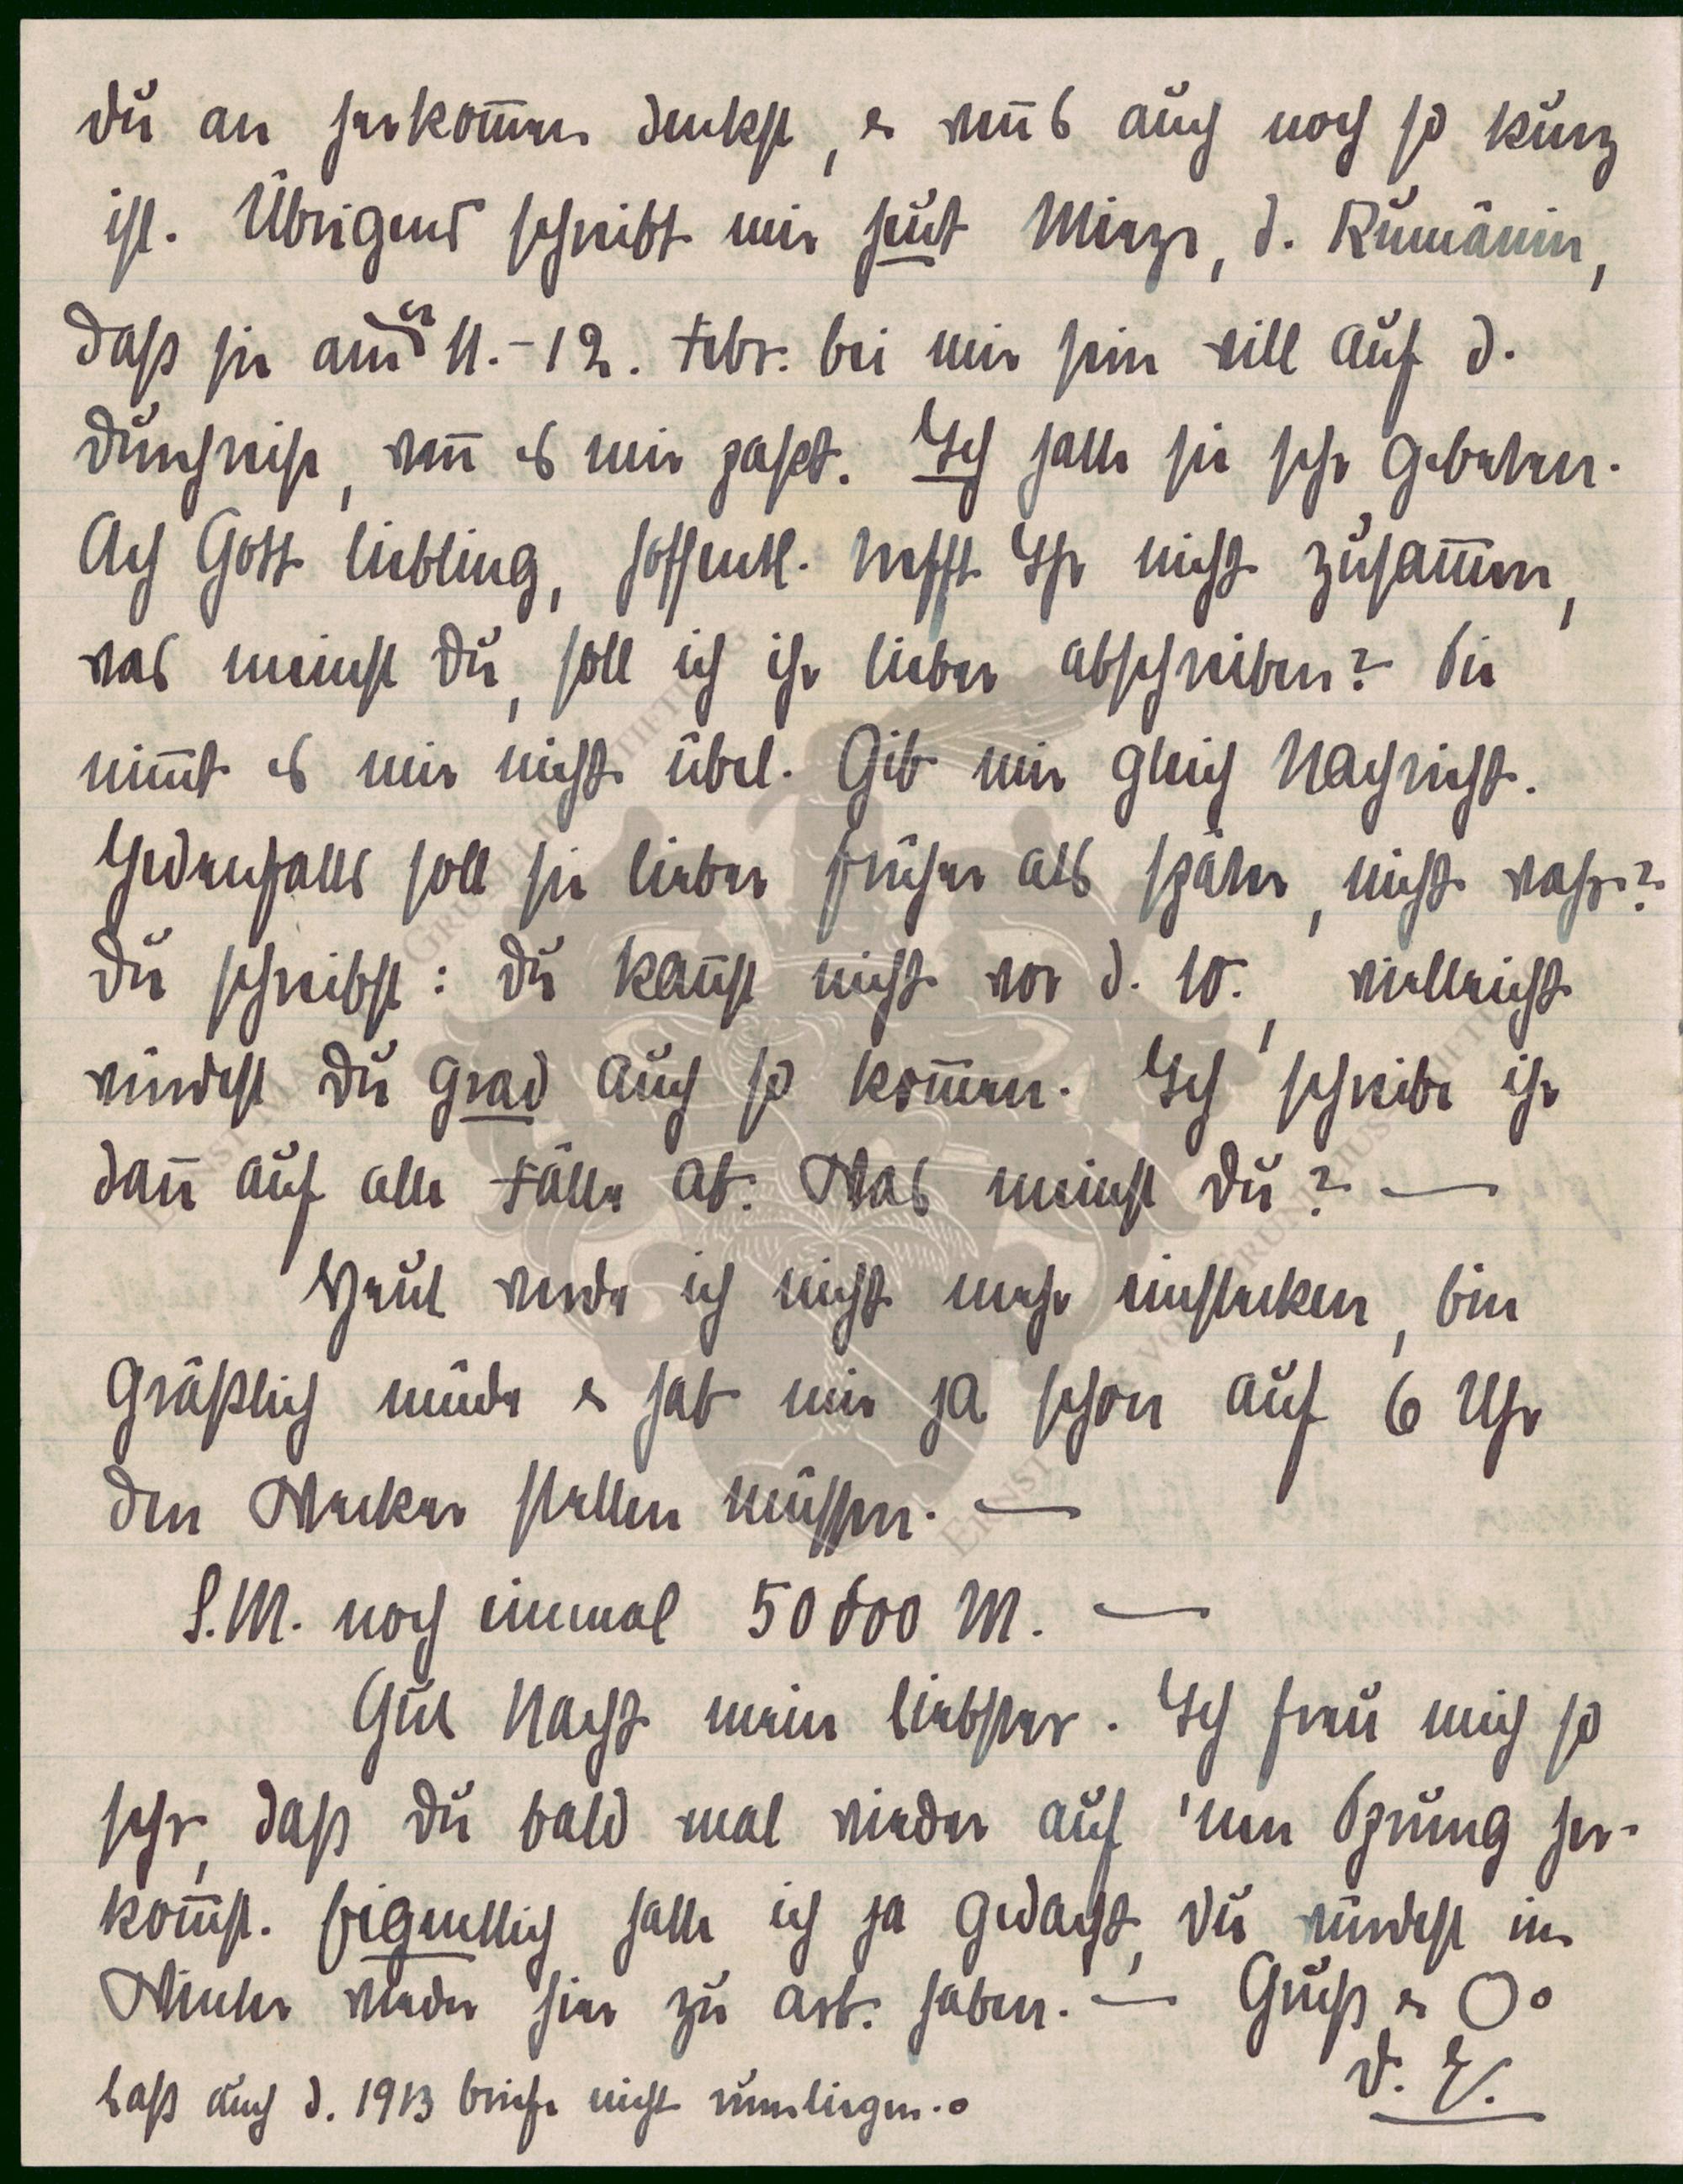 Du an herkom̅en denkst, & wen̅s auch noch so kurz
ist. Übrigens schreibt mir heut Mieze, d. Rumänin,
daß sie am 11.-12. Febr. bei mir sein will auf d.
Durchreise, wen̅ es mir paßt. Ich hatte sie sehr gebeten.
Ach Gott Liebling, hoffentl. trefft Ihr nicht zusam̅en,
was meinst Du, soll ich ihr lieber abschreiben? Sie
nim̅t es mir nicht übel. Gib mir gleich Nachricht.
Jedenfalls soll sie lieber früher als später, nicht wahr?
Du schreibst: Du kan̅st nicht vor d. 10., vielleicht
würdest Du grad auch so kom̅en. Ich schreibe ihr
dan̅ auf alle Fälle ab. Was meinst Du? —
Heut werde ich nicht mehr einstecken, bin
gräßlich müde & hab mir ja schon auf 6 Uhr
den Wecker stellen müssen. —
S.M. noch einmal 50 000 M. —
Gut Nacht mein Liebster. Ich freu mich so
sehr, daß Du bald mal wieder auf 'nen Sprung her-
kom̅st. Eigentlich hatte ich ja gedacht, Du würdest im
Winter wieder hier zu arb. haben. — Gruß & Oo
D. E.
Laß auch d. 1913 Briefe nicht rumliegen. o
ERNST VON
GRUMBKOW
STIFTUNG